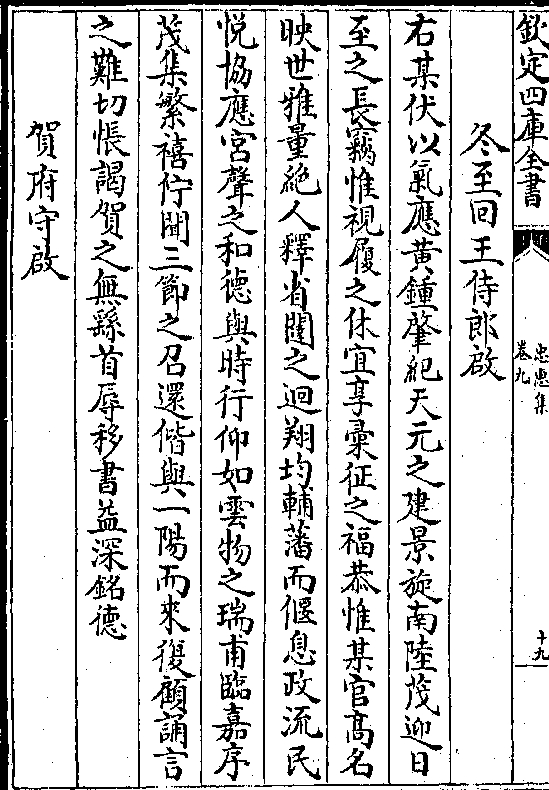 欽定四庫全書
忠惠集
卷九
十九
冬至回王侍郎啟
右某伏以氣應黃鍾肇紀天元之建景旋南陸茂迎日
至之長竊惟視履之休宜享彙征之福恭惟某官高名
映世雅量絶人釋省闥之迴翔均輔藩而偃息政流民
悅協應宮聲之和德與時行仰如雲物之瑞甫臨嘉序
茂集繁禧佇聞三節之召還偕與一陽而來復顧誦言
之難切悵謁賀之無繇首辱移書益深銘德
賀府守啟